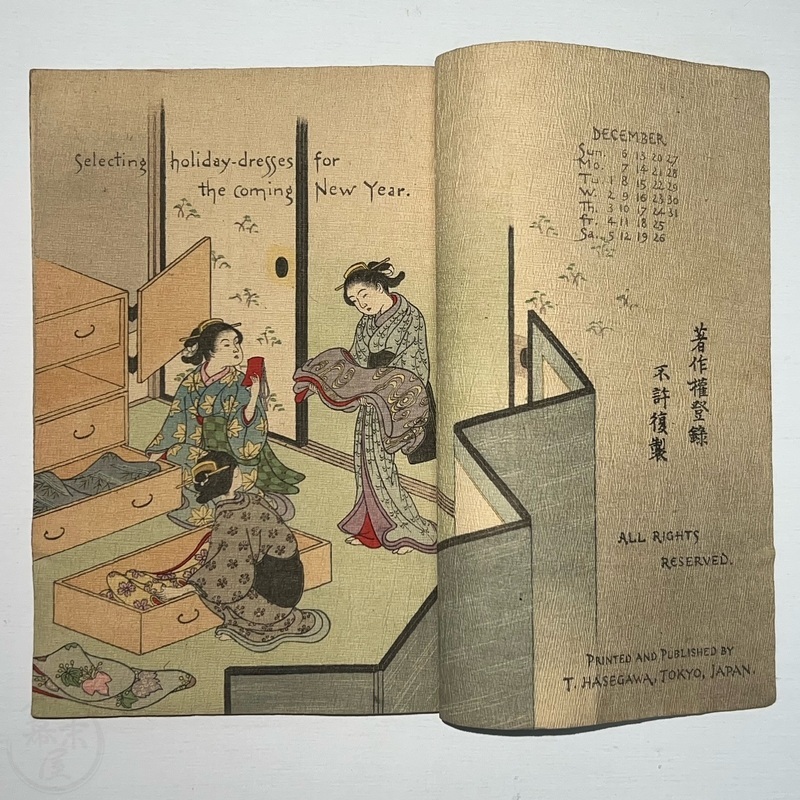 Selecting holiday-dresses for
the coming New Year.
DECEMBER
Sun. 6 13 20 27
Mo. 7 14 21 28
Tu. 1 8 15 22 29
W. 2 9 16 23 30
Th. 3 10 17 24 31
Fr. 4 11 18 25
Sa. 5 12 19 26
著作權登錄
不許復製
ALL RIGHTS
RESERVED.
PRINTED AND PUBLISHED BY
T. HASEGAWA, TOKYO, JAPAN.